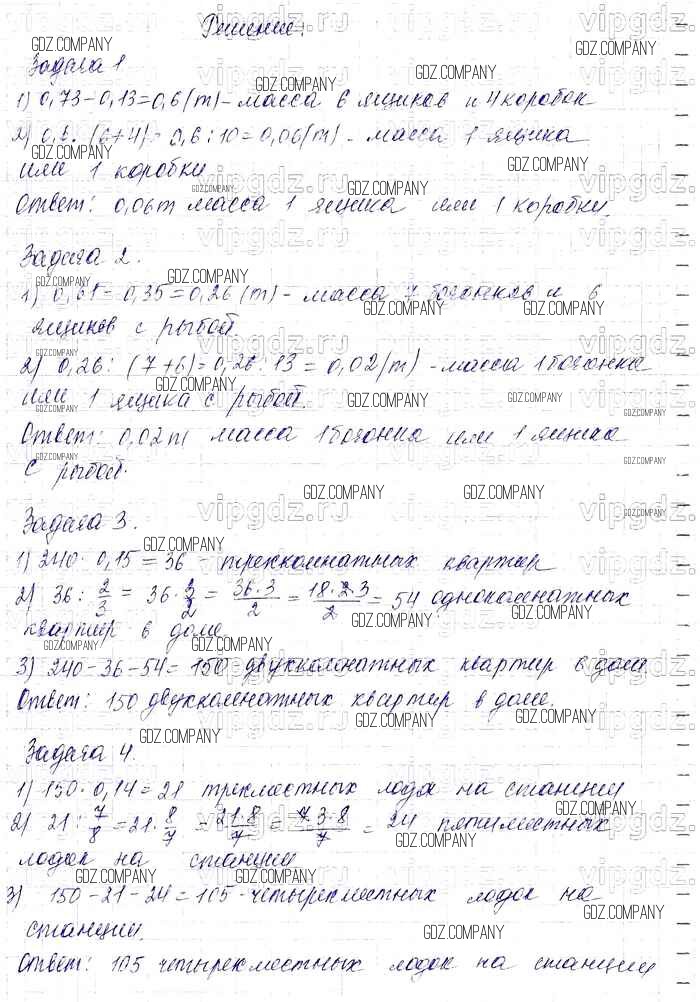 Решение:
Задача 1
1) 0,73-0,13=0,6(т)- масса 6 ящиков и 4 коробок
2) 0,6: (6+4)=0,6:10=0,06(т) - масса 1 ящика
или 1 коробки
Ответ: 0,06т масса 1 ящика или 1 коробки.
Задача 2.
1) 0,61-0,35=0,26(т)- масса 7 бочонков и 6
ящиков с рыбой.
2) 0,26: (7+6)=0,26:13=0,02(т) -масса 1 бочонка
или 1 ящика с рыбой.
Ответ: 0,02т масса 1 бочонка или 1 ящика
с рыбой.
Задача 3.
1) 240·0,15=36 - трехкомнатных квартир
2) 36: 2/3 = 36·3/2 = 36·3/2 = 18·2·3/2 = 54 однокомнатных
квартир в доме
3) 240-36-54=150 двухкомнатных квартир в доме
Ответ: 150 двухкомнатных квартир в доме.
Задача 4.
1) 150·0,14=21 трехместных лодок на станции
2) 21: 7/8 =21·8/7 = 21·8/7 = 7·3·8/7 = 24 пятиместных
лодок на станции
3) 150-21-24=105-четырехместных лодок на
станции.
Ответ: 105 четырехместных лодок на станции
vipgdz.ru
GDZ.COMPANY